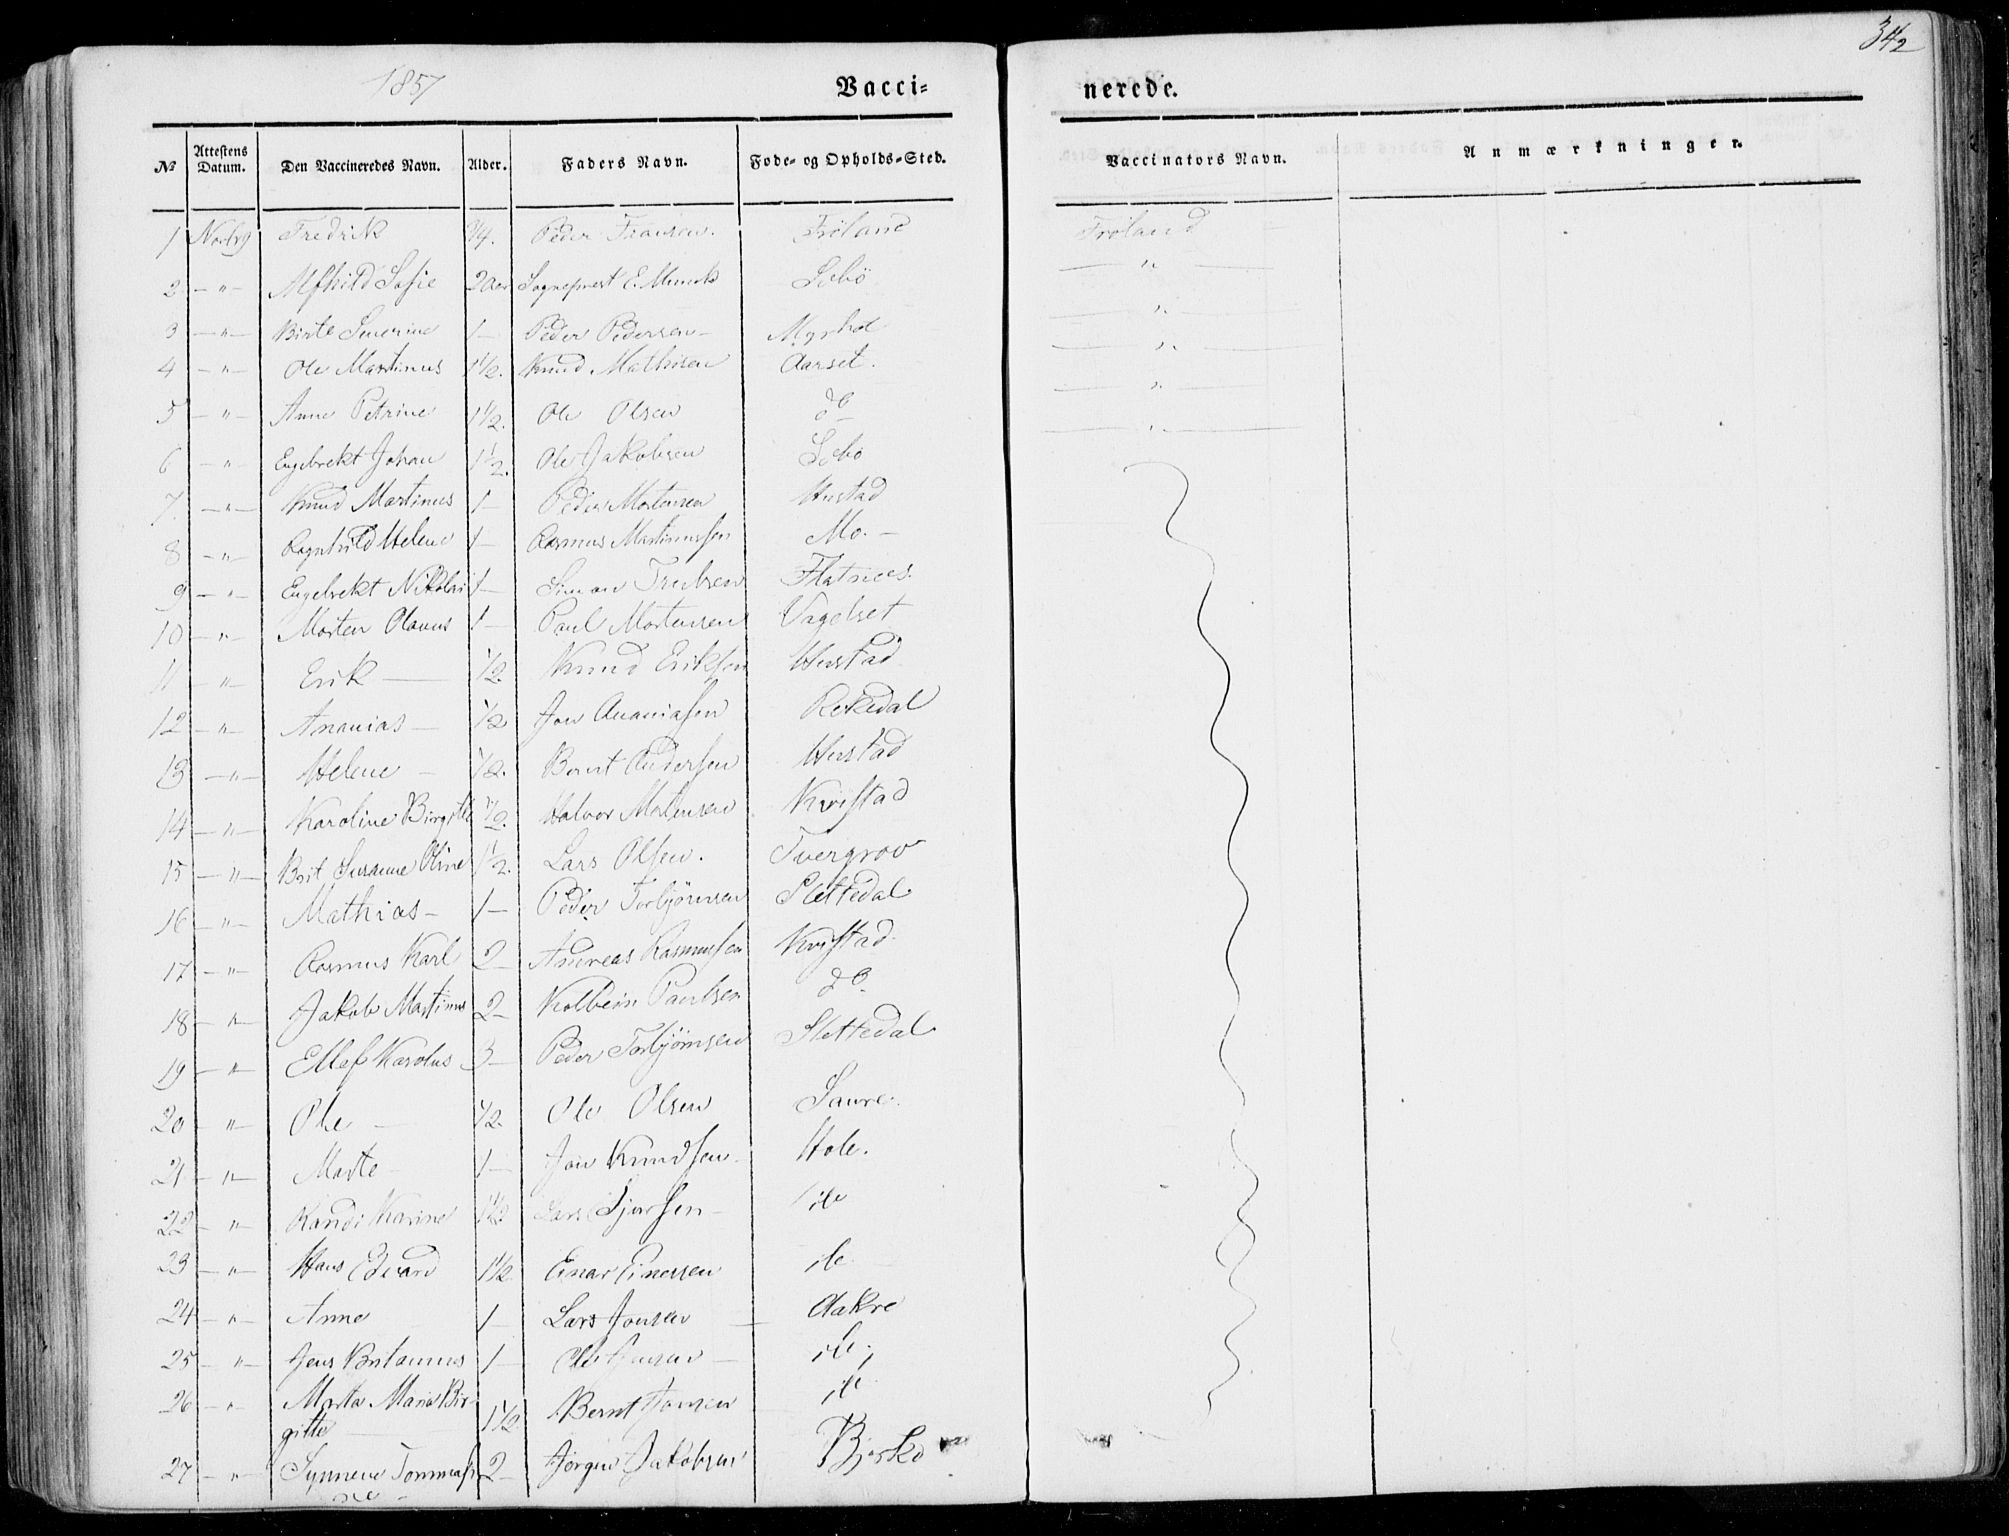 342
1857
Vacci-
nerede.
No Attestens Datum. Den Vaccineredes Navn. Alder. Faders Navn. Føde- og Opholds-Sted. Vaccinators Navn. Anmærkninger.
1 Fredrik 3/4. Peder Fransen. Frøland Frøland
2 — " — Alfhild Sofie 2 Aar Sogneprest E. Munch Sebö — " —
3 — " — Birte Severine 1 — Peder Pedersen — Myrhol — " —
4 — " — Ole Martinus 1 1/2. Knud Mathisen Aarset. — " —
5 — " — Anne Petrine 1 1/2. Ole Olsen do — " —
6 — " — Engebrekt Johan 1 1/2. Ole Jakobsen Sebö — " —
7 — " — Knud Martinus 1 — Peder Mortensen Hustad
8 — " — Ragnhild Helene 1 — Rasmus Martinussen Mo. —
9 — " — Engebrekt Nikolai 1 — Simon Flatnees.
10 — " — Morten Olaus 1 — Paul Mortensen Vagelset
11 — " — Erik — 1/2. Knud Eriksen Hustad
12 — " — Ananias — 1/2 Jon Ananiasen Rekedal
13 — " — Helene — 1/2. Bernt Andersen Hustad
14 — " — Karoline Birgitte 1/2. Halvor Mortensen Kvistad
15 — " — Brit Susanne Oline 1 1/2. Lars Olsen. Tvergrov
16 — " — Mathias — 1 — Peder Torbjörnsen Slettedal
17 — " — Rasmus Karl 2 — Andreas Rasmussen Kvistad.
18 — " — Jakob Martinus 2 — Kolbein Paulsen do
19 — " — Ellef Karolus 3 — Peder Torbjörnsen Slettedal
20 — " — Ole — 1/2. Ole Olsen Saure.
21 — " — Marte 1 — Jon Knudsen — Hole.
22 — " — Randi Karine 1 1/2 Lars Sjursen — ile
23 — " — Hans Edvard 1 1/2 Einar Einarsen ile
24 — " — Anne 1 — Lars Jonsen — Aakre
25 — " — Jens Britanus 1 — Ole Jensen — ile.
26 — " — Marta Maria Bir-
gitte — 1 1/2 Bernt Jonsen ile
27 — " — Synneve Tommas- 2 — Jörgen Jakobsen
ine —